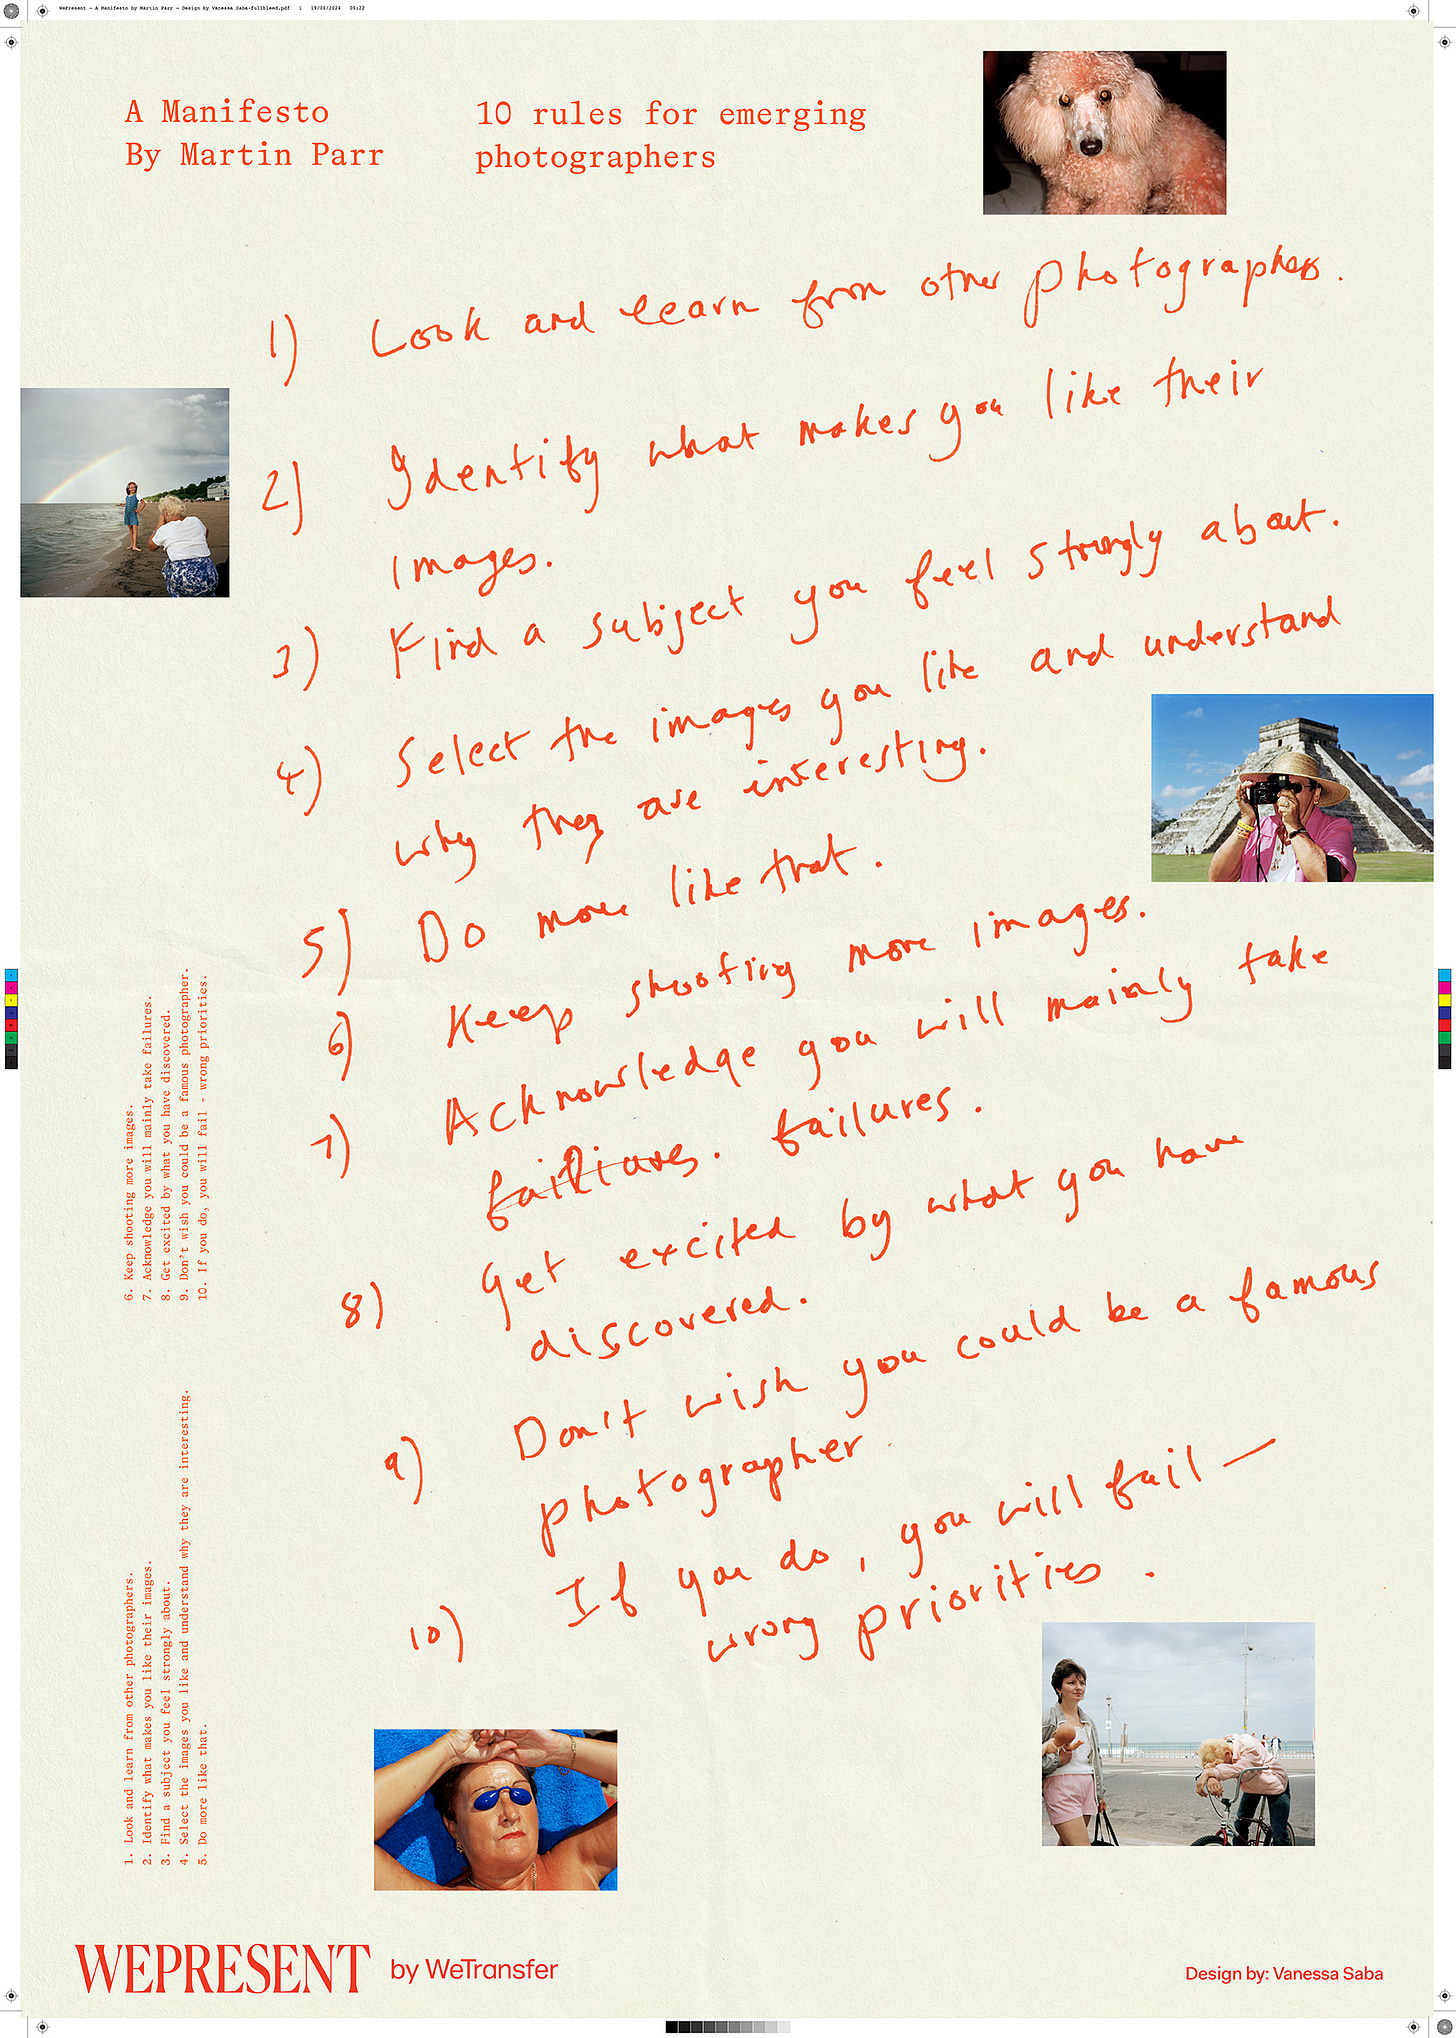 WePresent — A Manifesto by Martin Parr — Design by Vanessa Saba-fullbleed.pdf 1 19/08/2024 05:22
A Manifesto
By Martin Parr
10 rules for emerging
photographers
1) Look and learn from other photographers.
2) Identify what makes you like their
images.
3) Find a subject you feel strongly about.
4) Select the images you like and understand
why they are interesting.
5) Do more like that.
6) Keep shooting more images.
7) Acknowledge you will mainly take
failiures. failures.
8) Get excited by what you have
discovered.
9) Don't wish you could be a famous
photographer
10) If you do, you will fail —
wrong priorities.
6. Keep shooting more images.
7. Acknowledge you will mainly take failures.
8. Get excited by what you have discovered.
9. Don't wish you could be a famous photographer.
10. If you do, you will fail - wrong priorities.
1. Look and learn from other photographers.
2. Identify what makes you like their images.
3. Find a subject you feel strongly about.
4. Select the images you like and understand why they are interesting.
5. Do more like that.
WEPRESENT by WeTransfer
Design by: Vanessa Saba